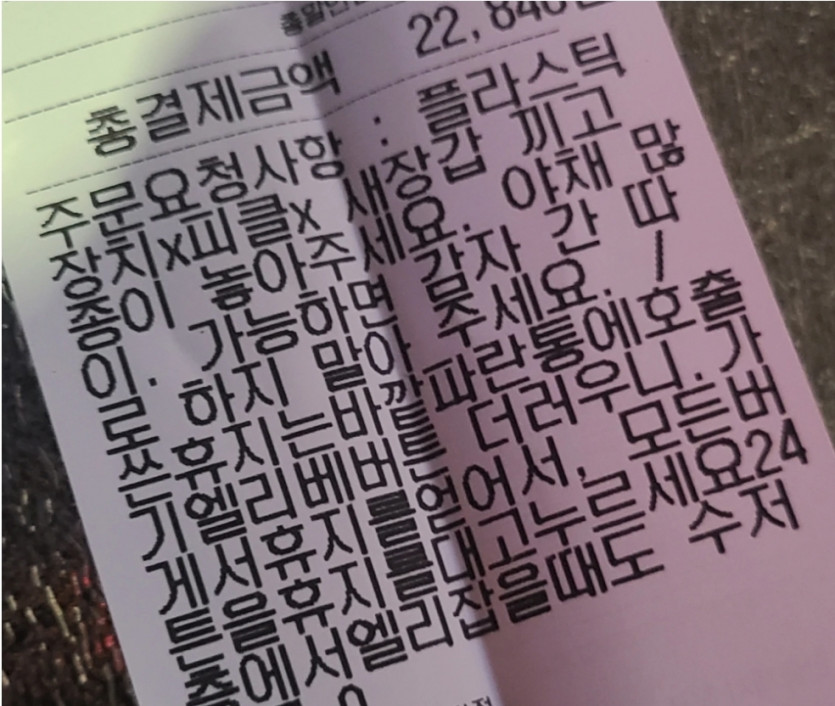 22,840
총결제금액
주문요청사항 : 플라스틱
장치x피클x 새장갑 끼고
종이 놓아주세요. 야채 많
이. 가능하면 감자 간 따
로 하지 말아 주세요. /
쓴 휴지는바깥파란통에호출
기 엘리베버튼 더러우니.가
게서휴지를얻어서, 모든버
튼을휴지를대고누르세요24
층에서엘리잡을때도 수저